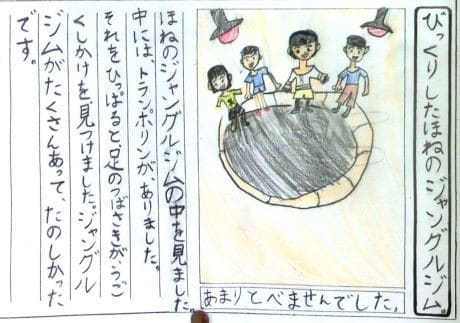 びっくりしたほねのジャングルジム。
あまりとべませんでした。
ほねのジャングルジムの中を見ました。
中には、トランポリンがありました。
それをひっぱると、足のつばさきが、うご
くしかけを見つけました。ジャングル
ジムがたくさんあって、たのしかった
です。